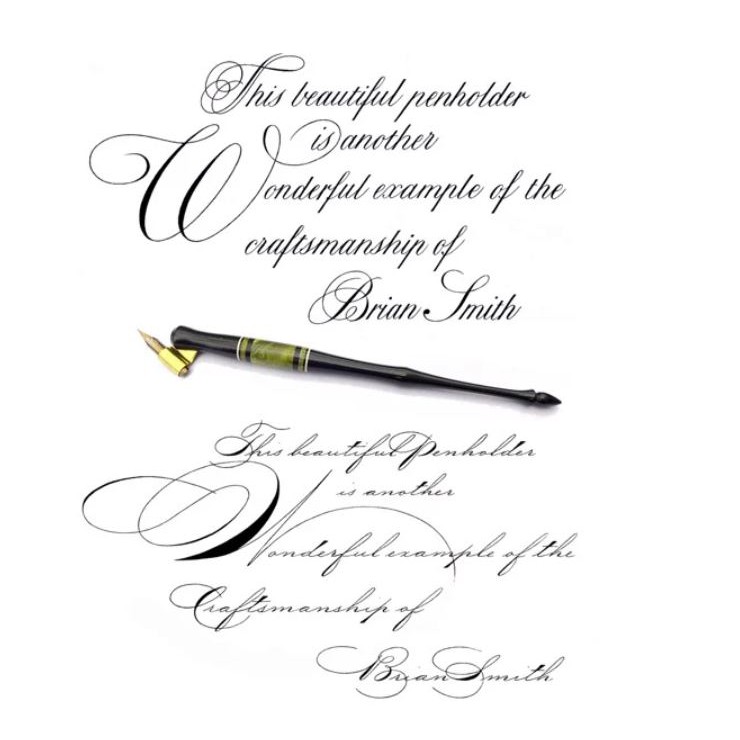 This beautiful penholder
is another
Wonderful example of the
craftsmanship of
Brian Smith
This beautiful Penholder
is another
Wonderful example of the
Craftsmanship of
Brian Smith